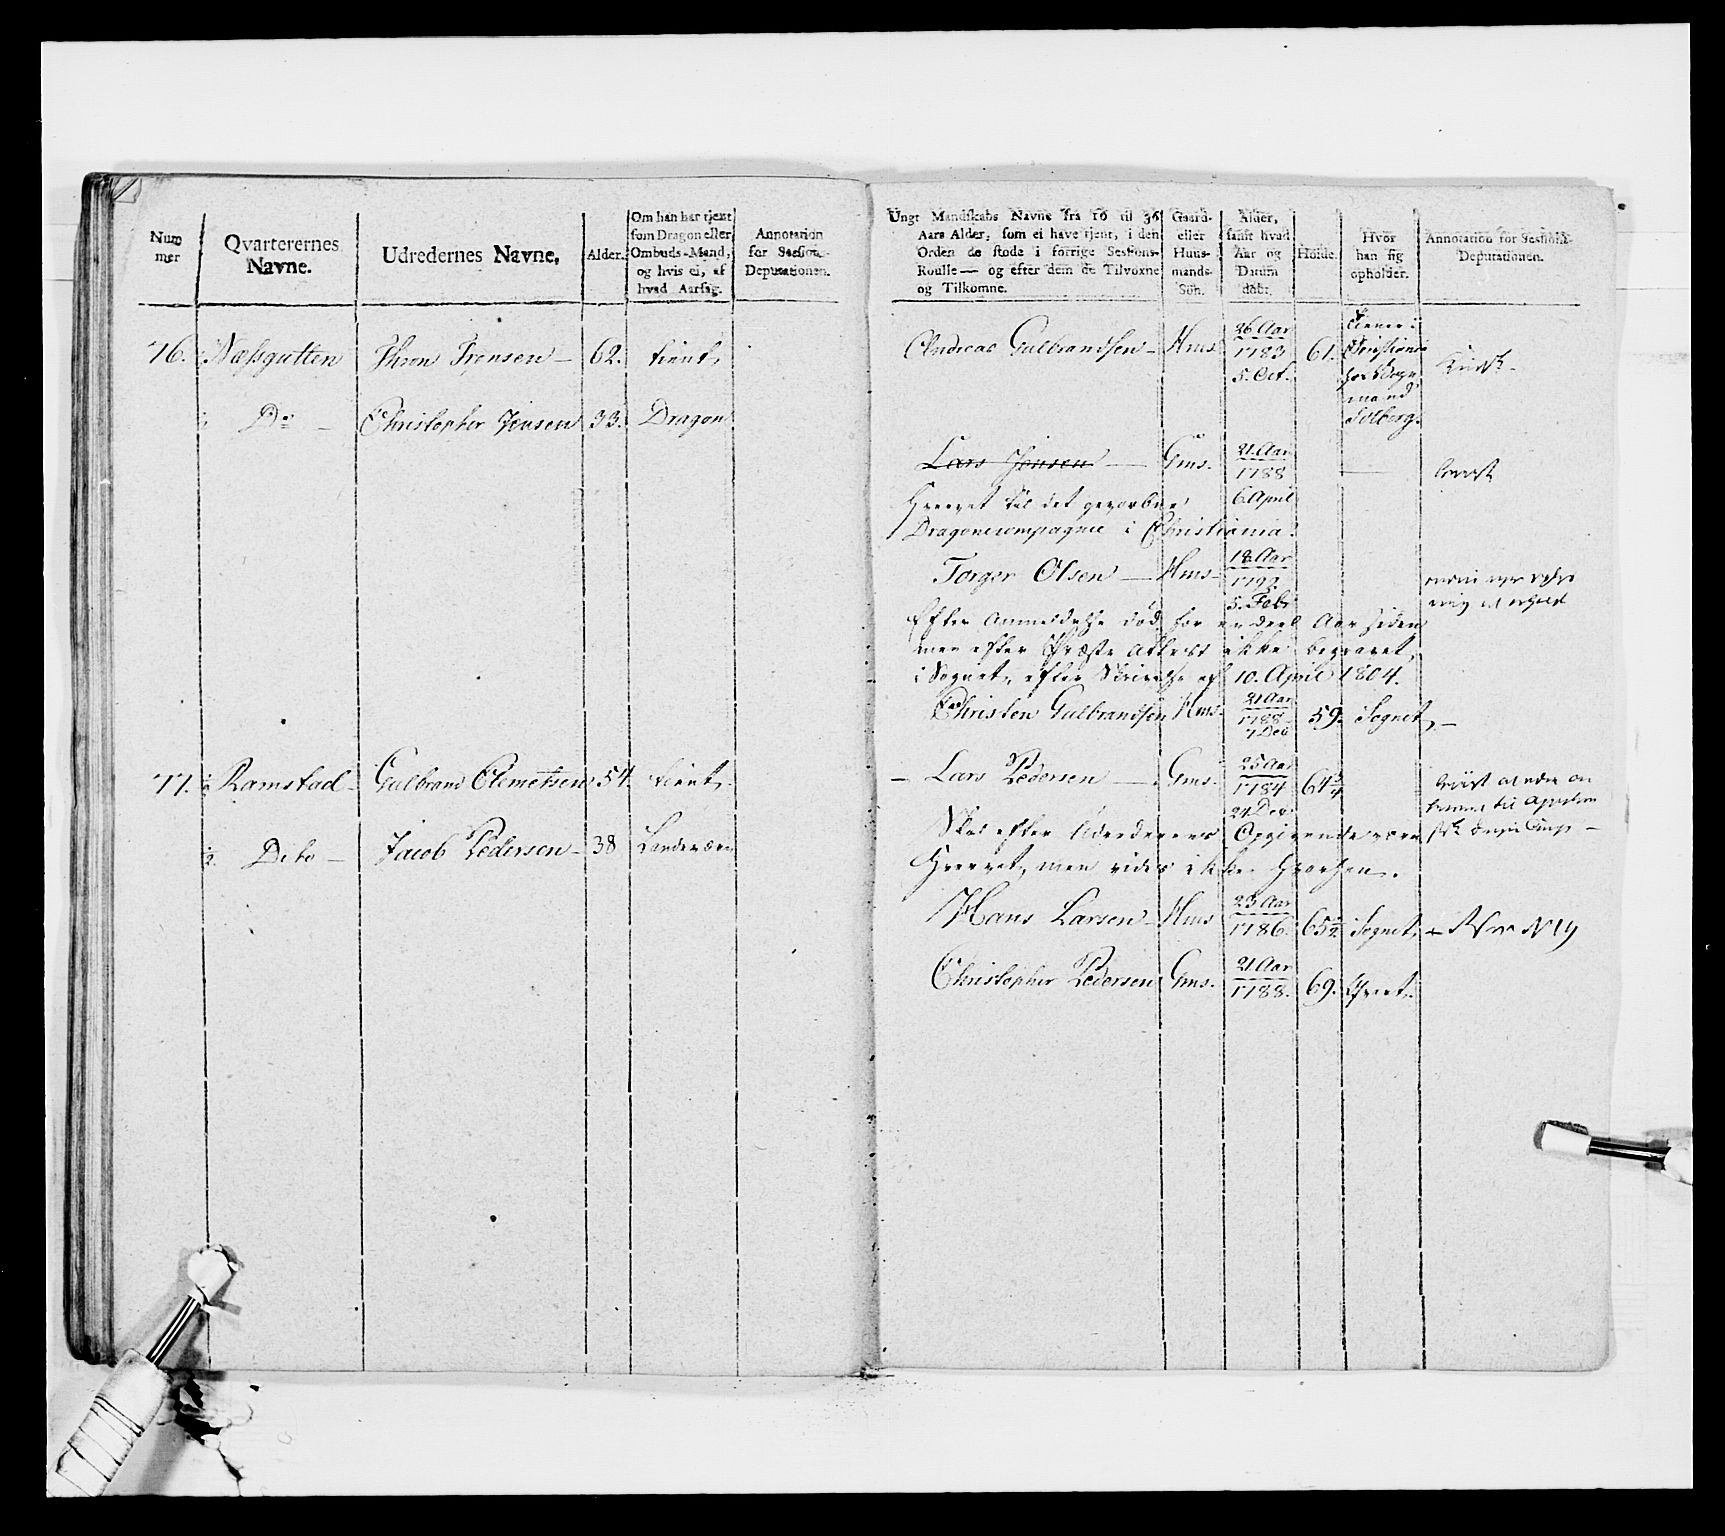 Num
mer
Qvarterernes
Navne.
Udredernes Navne.
Alder.
Om han har tjent
som Dragon eller
Ombuds-Mand,
og hvis ei, af
hvad Aarsag.
Annotation
for Sessions-
Deputationen.
76. Næssgutten Thron Trensen — 62. tient,
Do — Christopher Jensen 33. Dragon
77. Ramstad — Gulbrand Clemetsen 54. tient.
2. Dito — Jacob Pedersen — 38 Landeværn
Ungt Mandskabs Navne fra 16 til 36
Aars Alder, som ei have tjent, i den
Orden de stode i forrige Sessions-
Roulle — og efter dem de Tilvoxne
og Tilkomne.
Gaard-
eller
Huus-
mands-
Søn.
Alder,
samt hvad
Aar og
Datum
død.
Høide.
Hvor
han sig
opholder.
Annotation for Sessions-
Deputationen.
Andreas Gulbrandsen — Hms 26 Aar 1783 5. Oct. 61. tiener i Christiania
mand
Solberg.
Lars Jensen — Gms. 21. Aar 1788 6 April —
Hvervet til det gevorbne
Dragoncompagnie i Christiania.
Torger Olsen — Hms — 18 Aar 5. Feb
Efter Anmeldelse død for en deel Aar siden
men efter Præste Attest ikke begravet
i Sognet, efter Skrivelse af 10. April 1804.
Christen Gulbrandsen Hms. 21 Aar 1788 7 Dec 59. Sognet, —
— Lars Pedersen — Gms. 25 Aar 1784 24 Dec 64 3/4
Skal efter Udredernes Opgivende være
Hvervet, men vides ikke hvorhen.
Hans Larsen — Hms 23 Aar 1786. 65 1/2. Sognet,
Christopher Pedersen Gms. 21 Aar 1788. 69.